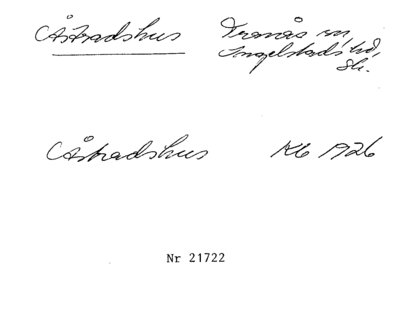 Åstradshus Tranås sn,
Ingelstads hd,
Sk.
Åstradshus Kb 1926
Nr 21722